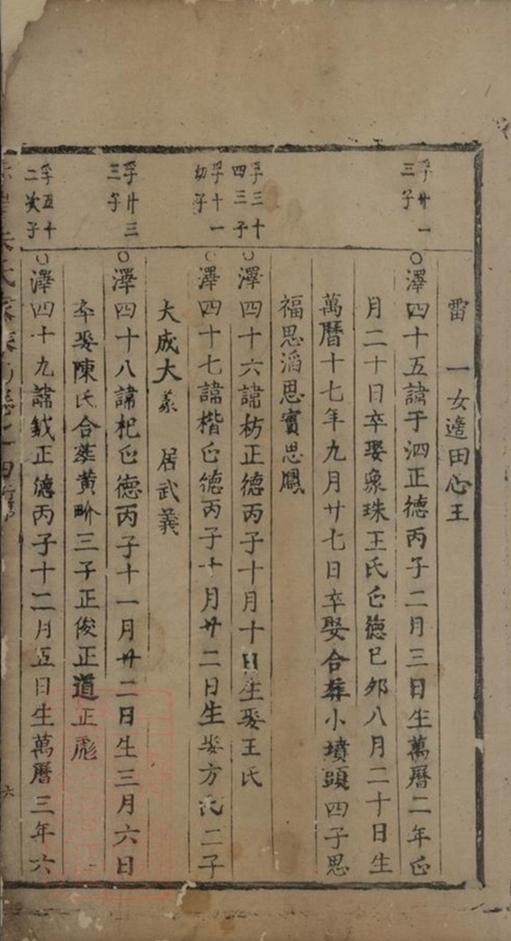 雷　一女適田心王
孚廿一三子
○澤四十五諱于泗正德丙子二月三日生萬曆二年正
月二十日卒娶泉珠王氏正德己卯八月二十日生
萬曆十七年九月廿七日卒娶合葬小墳頭四子思
福思滔思實思鳳
孚三十四三子
○澤四十六諱枋正德丙子十月十日生娶王氏
孚十一幼子
○澤四十七諱楷正德丙子十月廿二日生娶方氏二子
大成大義　居武義
孚廿三三子
○澤四十八諱杞正德丙子十一月廿二日生三月六日
卒娶陳氏合葬黃畈三子正俊正道正彪
孚五十二次子
○澤四十九諱鉞正德丙子十二月五日生萬曆三年六
六